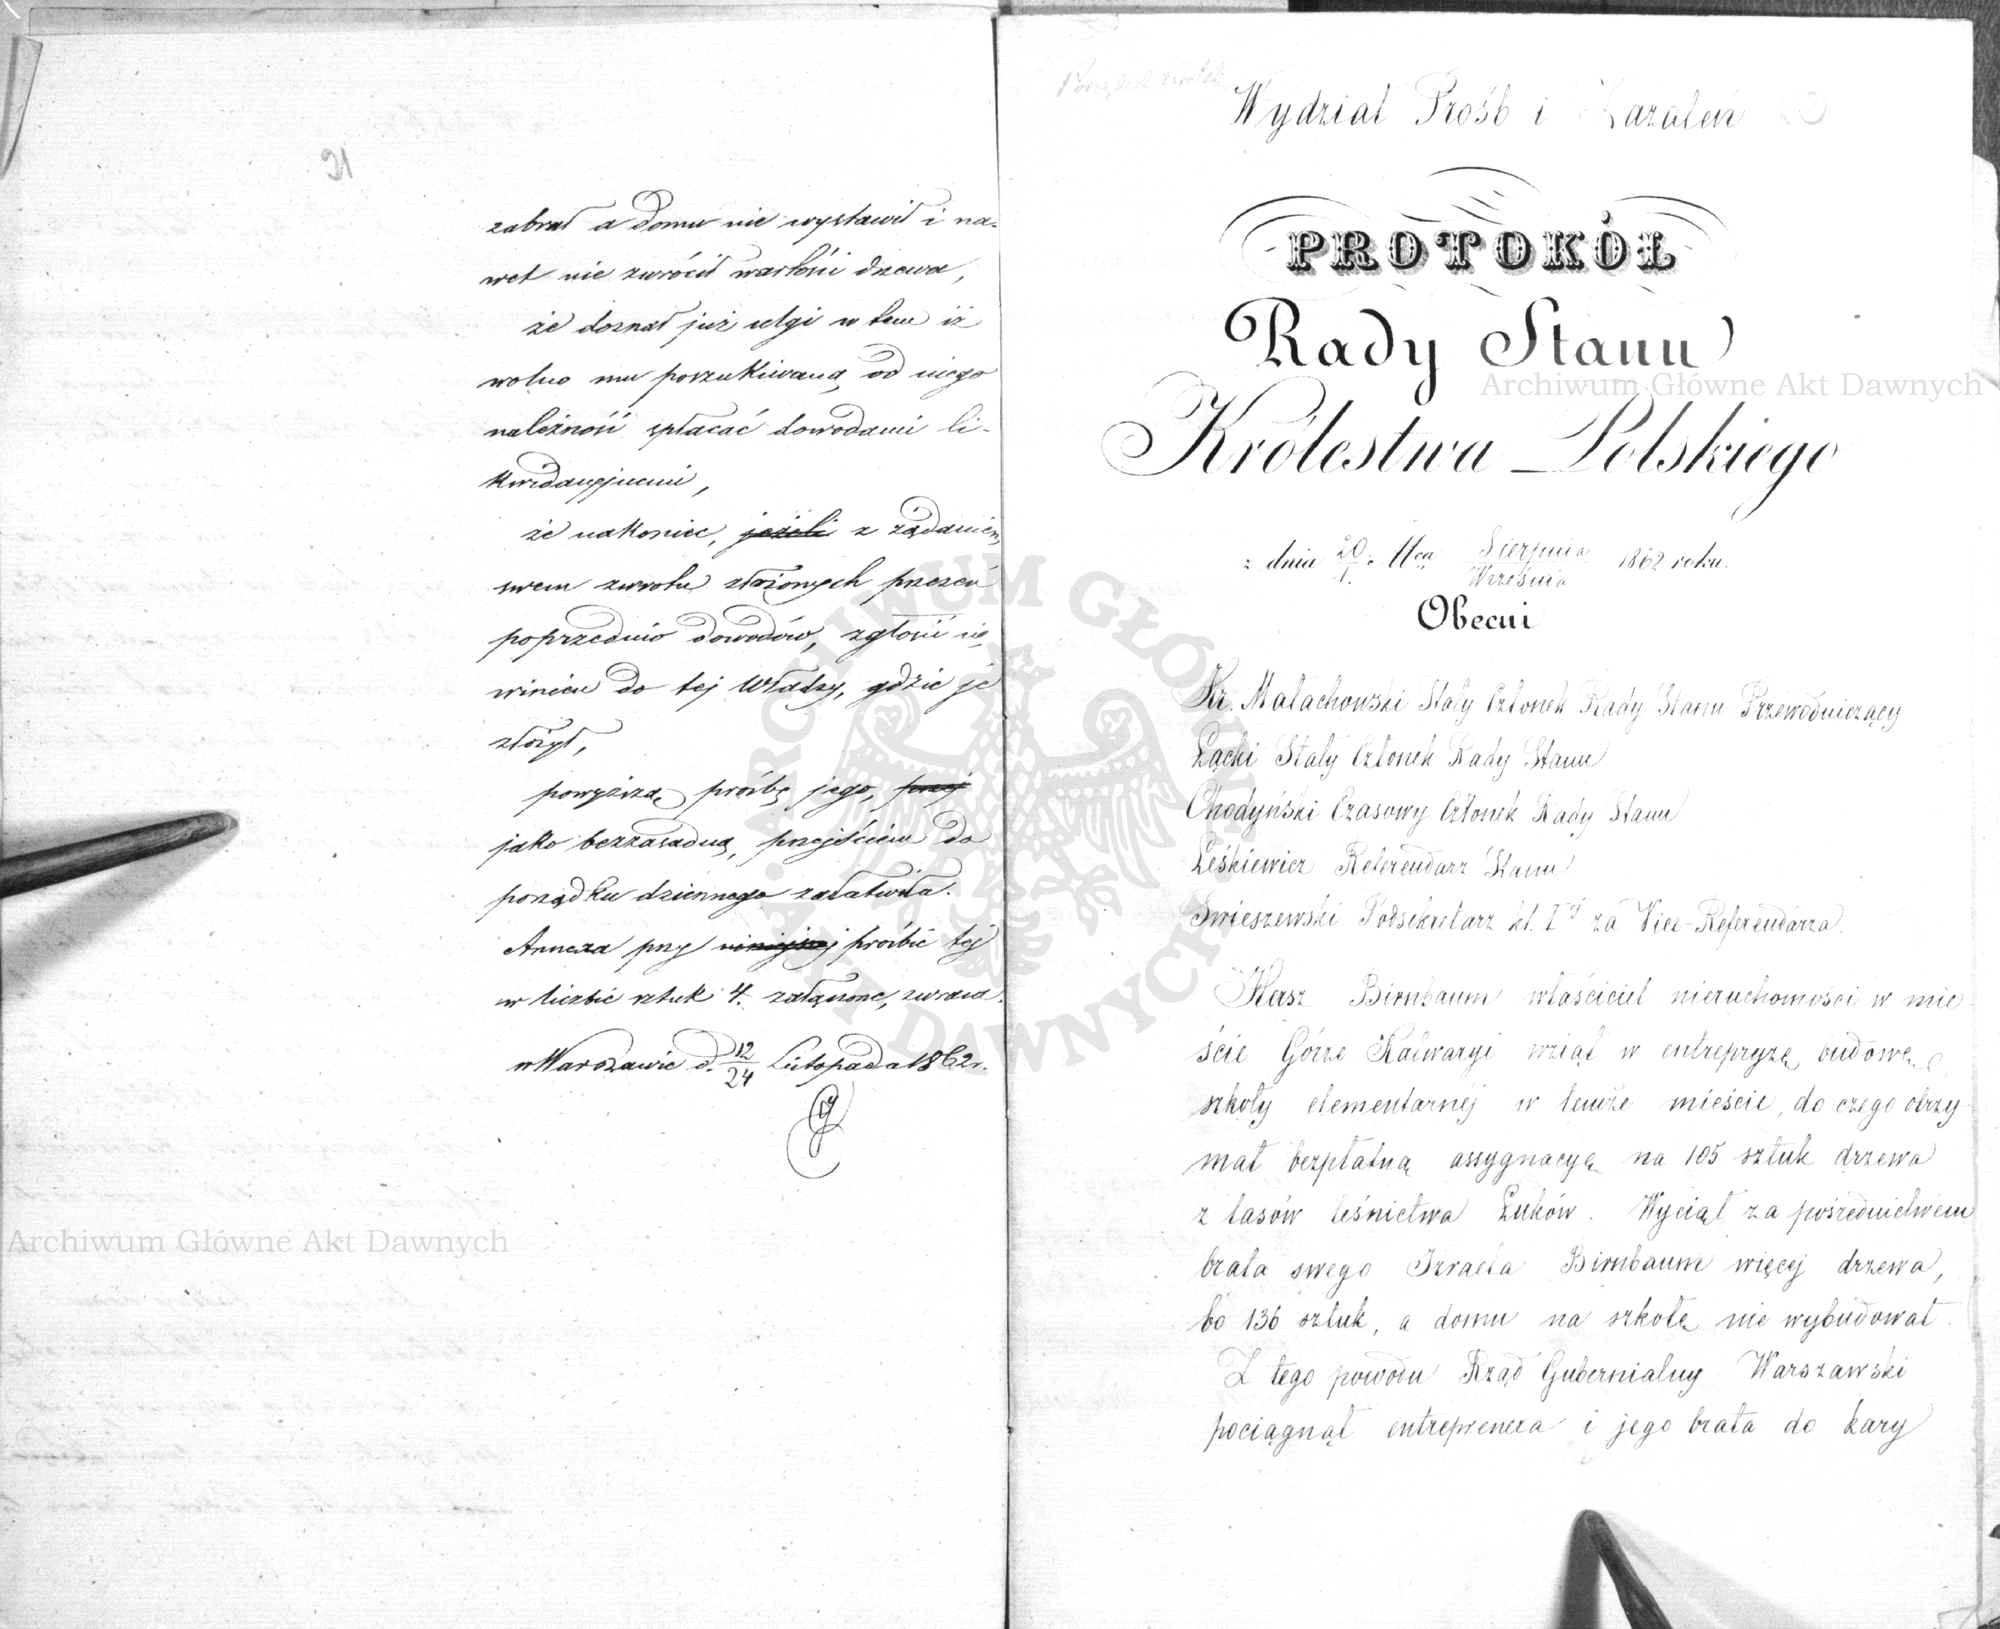 91
zabrał a domu nie wystawił i na-
wet nie zwrócił wartości drzewa,
że doznał już ulgi w tem iż
wolno mu poszukiwaną od niego
należność spłacać dowodami li-
kwidacyjnemi,
że nakoniec, jeżeli z żądaniem
swem zwrotu złożonych przezeń
poprzednio dowodów, zgłosić się
winien do tej Władzy, gdzie je
złożył,
powyższą prośbę jego,
jako bezzasadną, przejściem do
porządku dziennego załatwiła.
Annexa przy niniejszej prośbie tej
w liczbie sztuk 4. załączone, zwraca.
w Warszawie d. 12/24 Listopada 1862 r.
Wydział Próśb i Zażaleń
PROTOKÓŁ
Rady Stanu
Królestwa Polskiego
z dnia 20/1. Mca Sierpnia/Września 1862 roku.
Obecni
Hr. Małachowski Stały Członek Rady Stanu Przewodniczący
Łącki Stały Członek Rady Stanu
Chodyński Czasowy Członek Rady Stanu
Leśkiewicz Referendarz Stanu
Świeszewski Podsekretarz kl. Iej za Vice-Referendarza.
Hersz Birnbaum właściciel nieruchomości w mie
ście Górze Kalwaryi wziął w entrepryzę budowę
szkoły elementarnéj w temże mieście, do czego otrzy-
mał bezpłatną assygnacyę na 105 sztuk drzewa
z lasów leśnictwa Łuków. Wyciął za pośrednictwem
brata swego Izraela Birnbaum więcéj drzewa,
bo 136 sztuk, a domu na szkołę nie wybudował.
Z tego powodu Rząd Gubernialny Warszawski
pociągnął entreprenera i jego brata do kary
Archiwum Główne Akt Dawnych
Archiwum Główne Akt Dawnych
ARCHIWUM GŁÓWNE AKT DAWNYCH